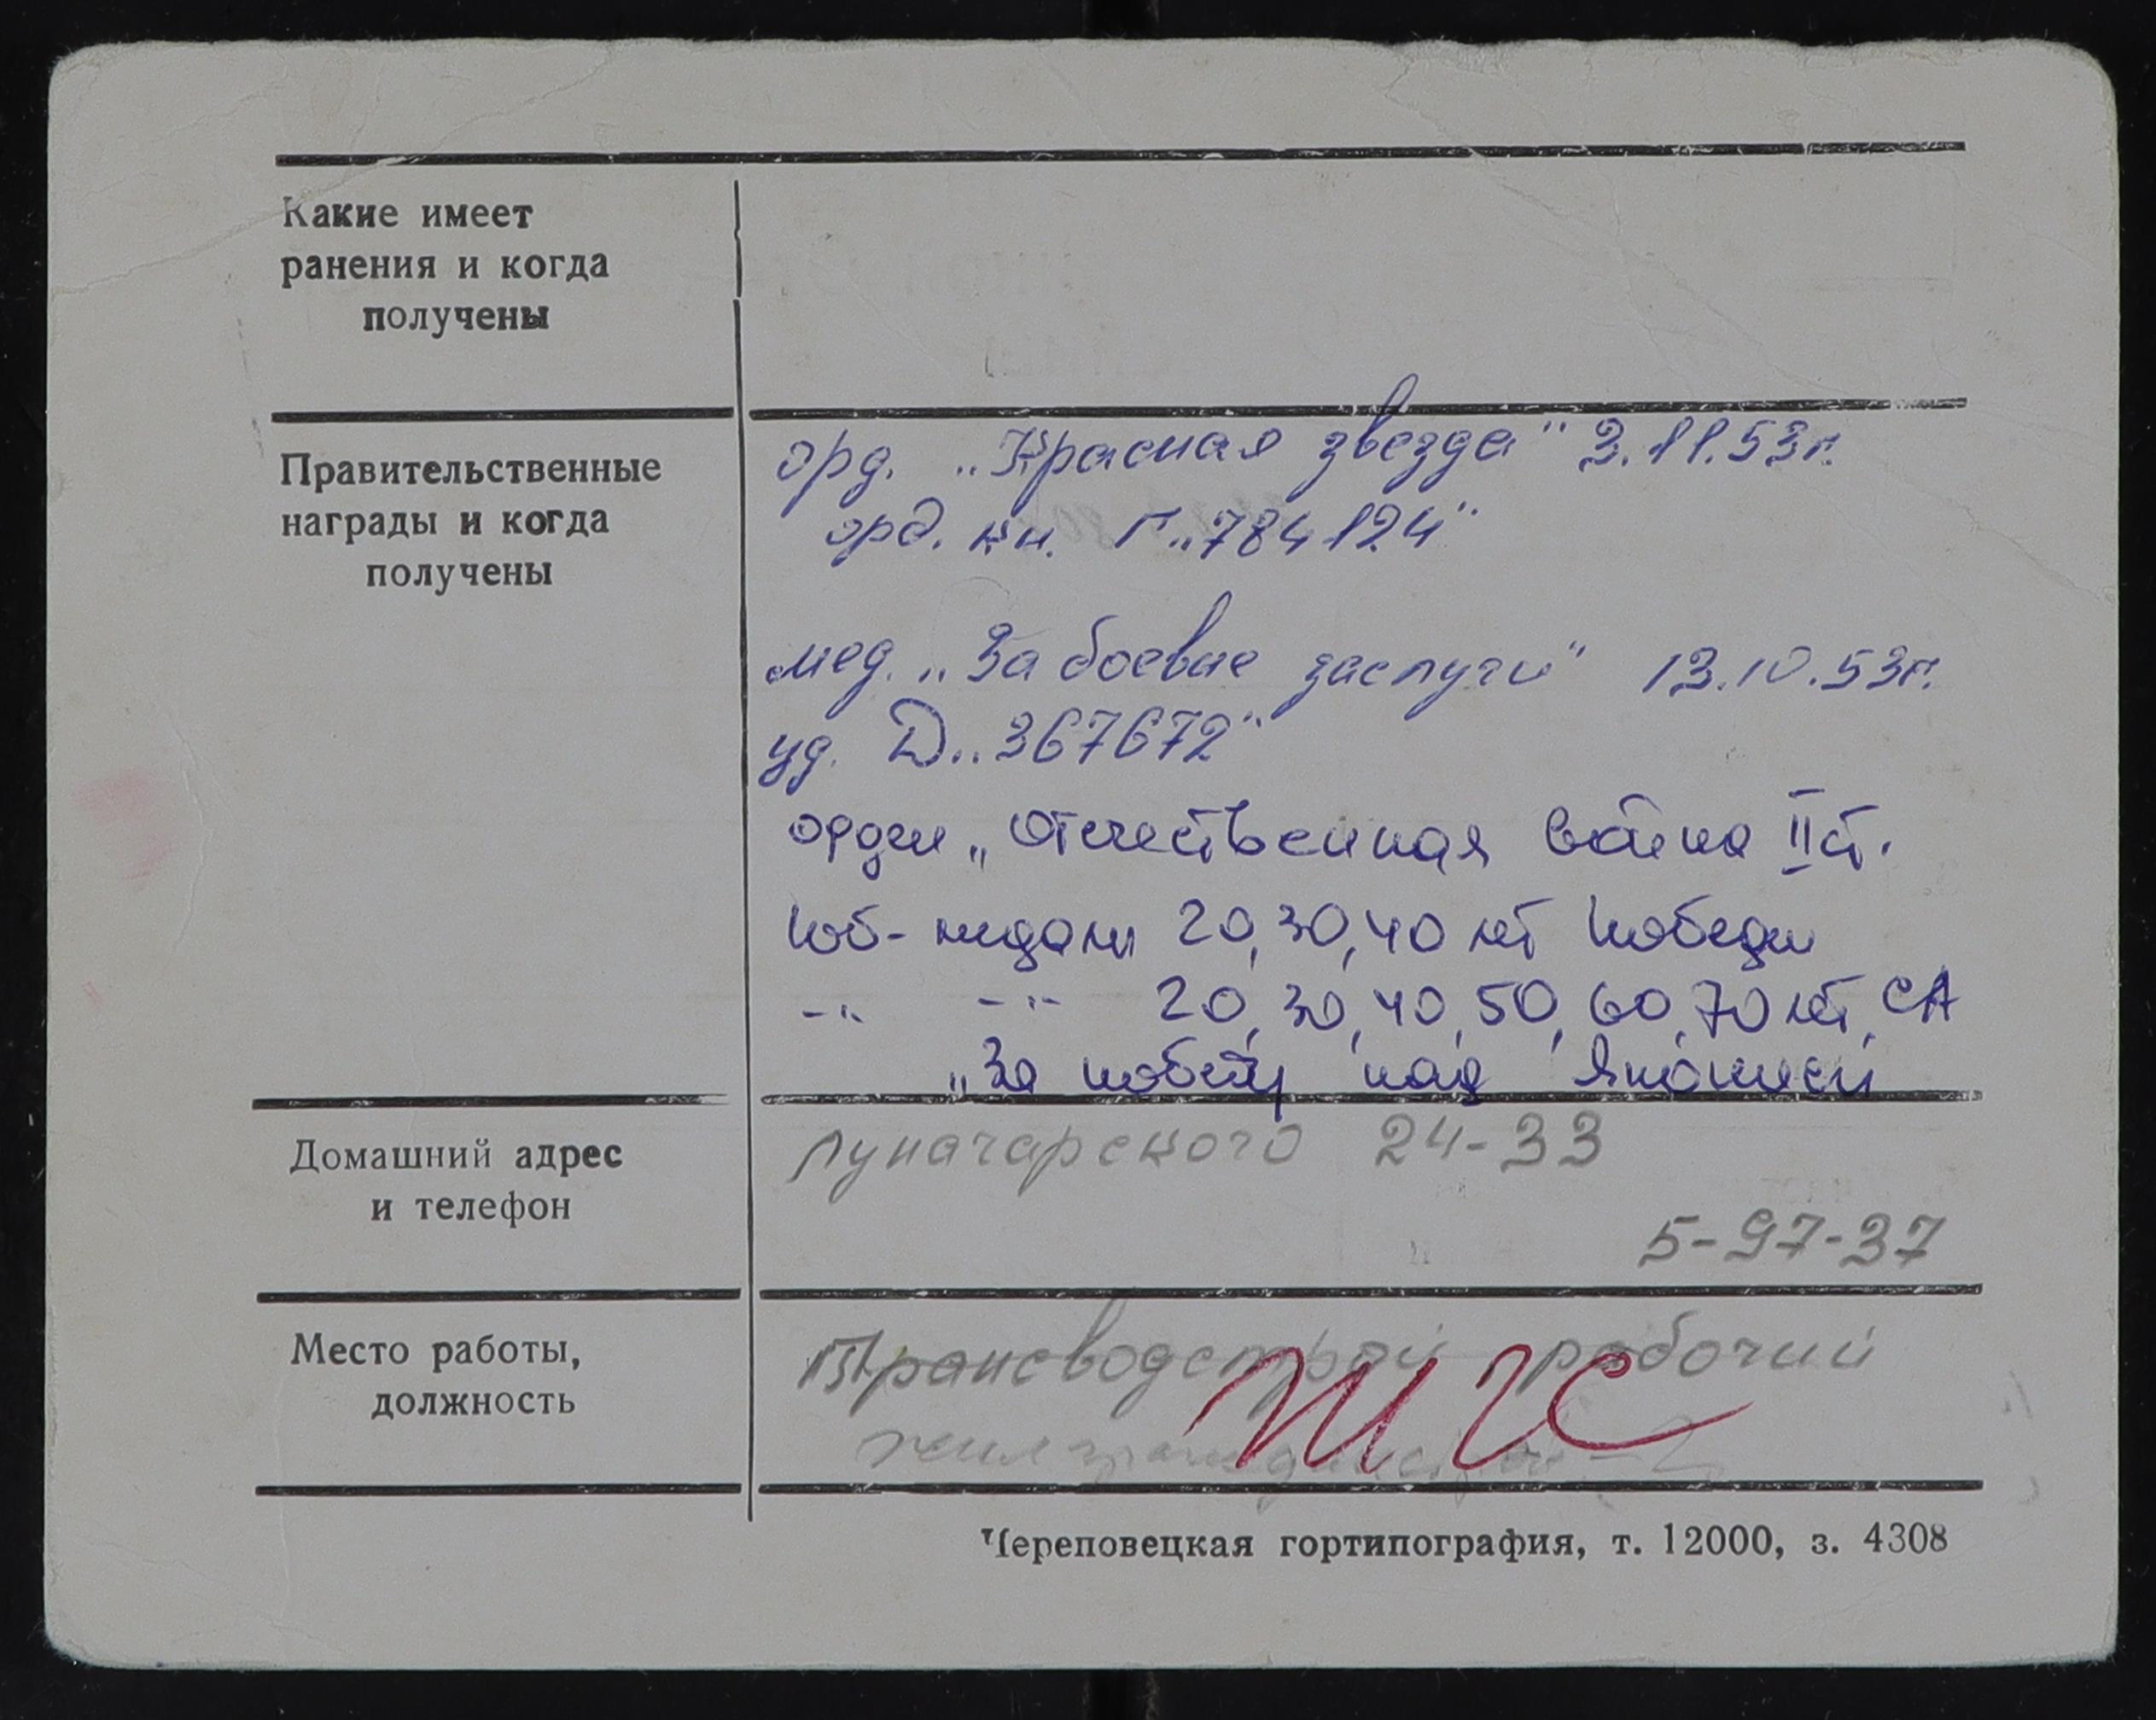 Какие имеет
ранения и когда
получены
Правительственные
награды и когда
получены
орд. „Красная звезда" 3.11.53г.
орд. кн. Г „784124"
мед. „За боевые заслуги" 13.10.53г.
уд. Д „367672"
орден „Отечественная война II ст.
Юб- медали 20, 30, 40 лет Победы
-"- -"- 20, 30, 40, 50, 60, 70 лет СА
„За победу над Японией
Домашний адрес
и телефон
Луначарского 24-33
5-97-37
Место работы,
должность
Трансводстрой рабочий
ЖГС
Череповецкая гортипография, т. 12000, з. 4308